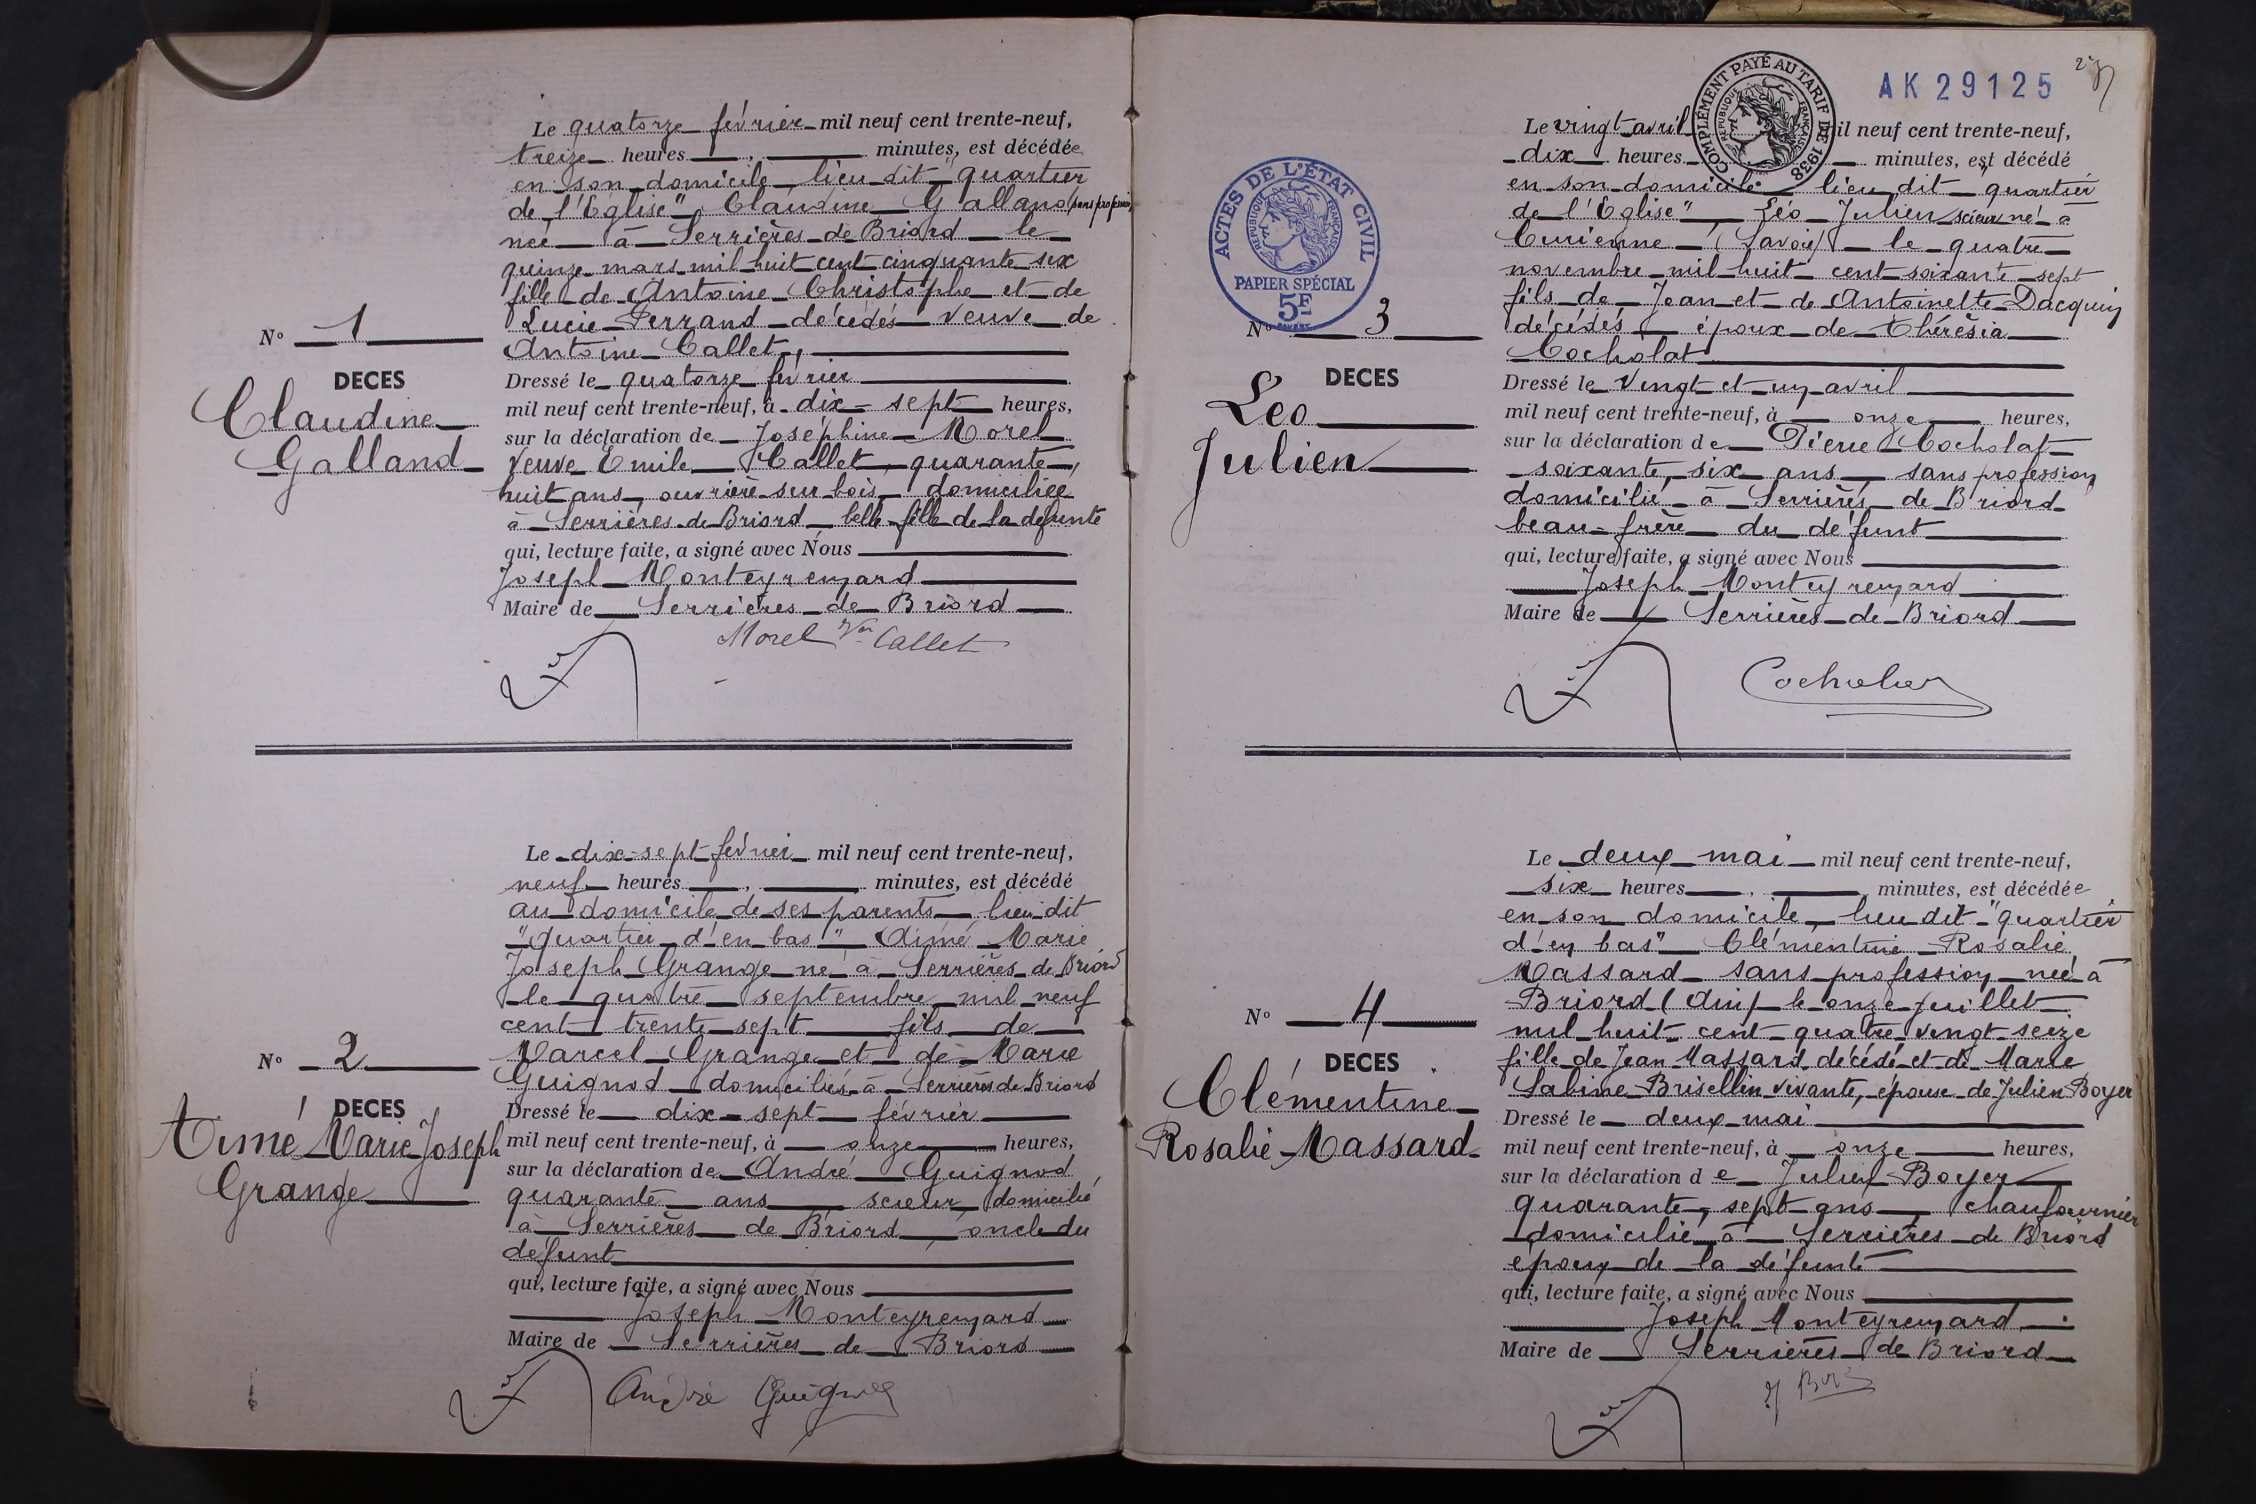 Le quatorze février mil neuf cent trente-neuf,
treize heures, minutes, est décédée
en son domicile lieu dit "quartier
de l'Eglise" Claudine Galland (sans profession)
née à Serrières de Briord le
quinze mars mil huit cent cinquante six
fille de Antoine Christophe et de
Lucie Perrand décédés veuve de
Antoine Callet,
N° 1
DECES
Claudine
Galland
Dressé le quatorze février
mil neuf cent trente-neuf, à dix-sept heures,
sur la déclaration de Joséphine Morel
veuve Emile Callet, quarante,
huit ans, ouvrière sur bois, domiciliée
à Serrières de Briord belle-fille de la défunte
qui, lecture faite, a signé avec Nous
Joseph Monteyremard
Maire de Serrières de Briord
Morel Vve Callet
Le dix-sept février mil neuf cent trente-neuf,
neuf heures, minutes, est décédé
au domicile de ses parents lieu dit
"quartier d'en bas" Aimé Marie
Joseph Grange né à Serrières de Briord
le quatre septembre mil neuf
cent trente sept fils de
Marcel Grange et de Marie
Guignod domiciliés à Serrières de Briord
N° 2
DECES
Aimé Marie Joseph
Grange
Dressé le dix-sept février
mil neuf cent trente-neuf, à onze heures,
sur la déclaration de André Guignod
quarante ans scieur, domicilié
à Serrières de Briord, oncle du
défunt
qui, lecture faite, a signé avec Nous
Joseph Monteyremard
Maire de Serrières de Briord
André Guignod
AK 29125
COMPLÉMENT PAYÉ AU TARIF DE 1938
REPUBLIQUE FRANÇAISE
Le vingt avril mil neuf cent trente-neuf,
dix heures minutes, est décédé
en son domicile lieu dit "quartier
de l'Eglise", Léo Julien scieur né à
Curienne (Savoie) le quatre
novembre mil huit cent soixante sept
fils de Jean et de Antoinette Dacquin
décédés époux de Thérèsia
Cocholat
ACTES DE L'ÉTAT CIVIL
REPUBLIQUE FRANÇAISE
PAPIER SPÉCIAL
5F
N° 3
DECES
Leo
Julien
Dressé le vingt et un avril
mil neuf cent trente-neuf, à onze heures,
sur la déclaration de Pierre Cocholat
soixante, six ans, sans profession
domicilié à Serrières de Briord
beau-frère du défunt
qui, lecture faite, a signé avec Nous
Joseph Monteyremard
Maire de Serrières de Briord
Cocholat
Le deux mai mil neuf cent trente-neuf,
six heures, minutes, est décédée
en son domicile, lieu dit "quartier
d'en bas" Clémentine Rosalie
Massard sans profession née à
Briord (Ain) le onze juillet
mil huit cent quatre vingt seize
fille de Jean Massard décédé et de Marie
Sabine Brisellin vivante, épouse de Julien Boyer
N° 4
DECES
Clémentine
Rosalie Massard
Dressé le deux mai
mil neuf cent trente-neuf, à onze heures,
sur la déclaration de Julien Boyer
quarante, sept ans, chaufournier
domicilié à Serrières de Briord
époux de la défunte
qui, lecture faite, a signé avec Nous
Joseph Monteyremard
Maire de Serrières de Briord